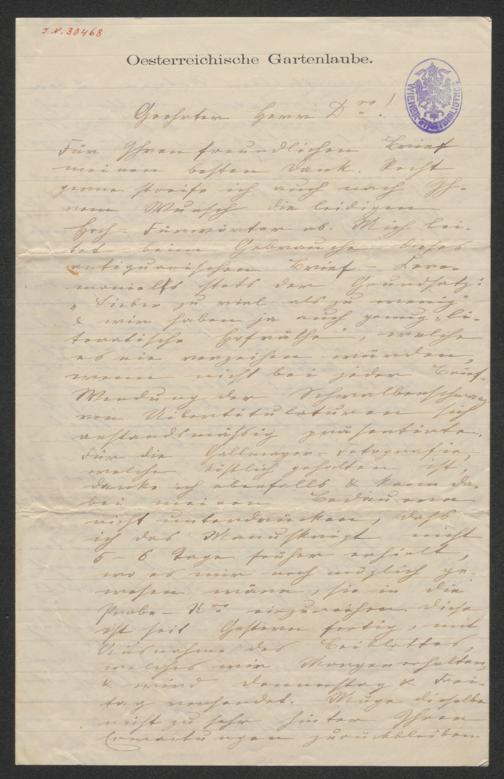 J.N. 30468
Oesterreichische Gartenlaube.
Geehrter Herr Dr!
Für Ihren freundlichen Brief
meinen besten Dank. Recht
gerne streife ich auch nach Ih-
rem Wunsch die leidigen
Hoch-Fürwörter ab. Mich lei-
tet beim Gebrauche dieses
antiquarischen Brief-Zere-
moniells stets der Grundsatz:
"Lieber zu viel als zu wenig"
& wir haben ja auch genug "li-
terarische Hofräthe", welche
es nie verzeihen würden,
wenn nicht bei jeder Brief-
Wendung der Schwalbenschwanz
von Übertitulaturen sich
anstandsmäßig präsentirte.
Für die Gallmayer-Fotografie,
welche köstlich gehalten ist,
danke ich ebenfalls & kann da-
bei meinen Bedauern
nicht unterdrücken, daß
ich das Manuskript nicht
5-6 Tage früher erhielt,
wo es mir noch möglich ge-
wesen wäre, sie in die
Probe-Nro einzureihen. Diese
ist seit Gestern fertig, mit
Ausnahme des Beiblattes,
welches wir Morgen erhalten
& wird Donnerstag & Frei-
tag versendet. Möge dieselbe
nicht zu sehr hinter Ihren
Erwartungen zurückbleiben.